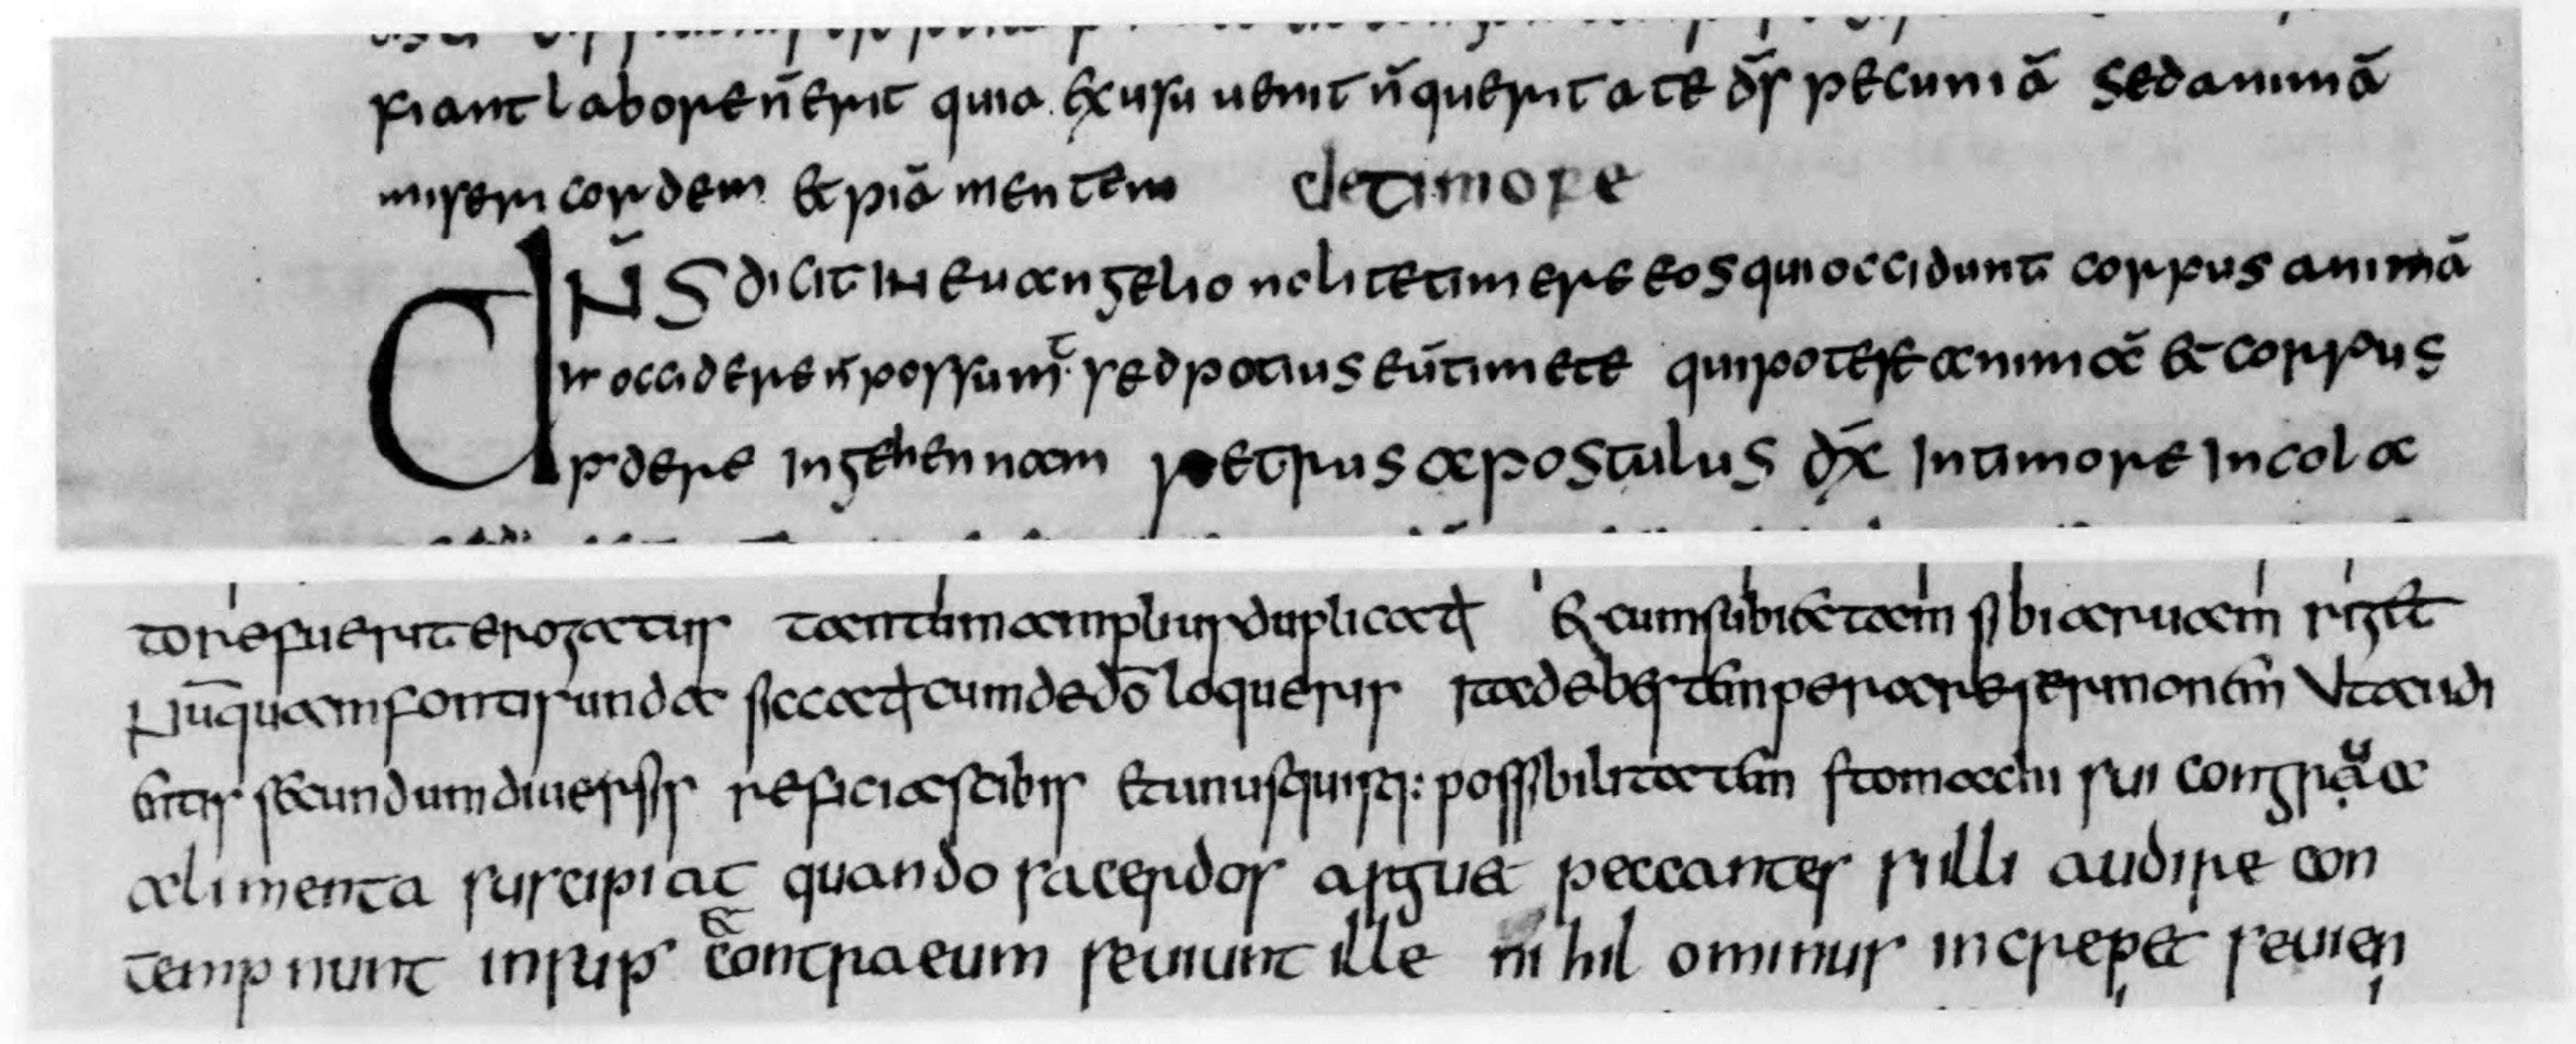 fiant labore n̄ erit quia ex usu uenit n̄ querit a te d̄s pecuniā sed animā
misericordem & piā mentem de timore
DN̄S dicit in euangelio nolite timere eos qui occidunt corpus animā
u͞r occidere n̄ possunt sed potius eū timete qui potest animā & corpus
pdere in gehennam petrus apostulus dx̄ in timore incola
tore fuerit erogatur tantum amplius duplicatꝗ & cum subiectam sibi aruam riget
Nūquam fontis unda siccatꝗ cum de dō loqueris ita debes temperare sermonem ut audi
entis secundum diuersis reficias cibis et unusquisq: possibilitatem stomachi sui congrua
alimenta suscipiat quando sacerdos arguet peccantes si illi audire con
tempnunt insup & contra eum seuiunt ille nihil ominus increpet seuien